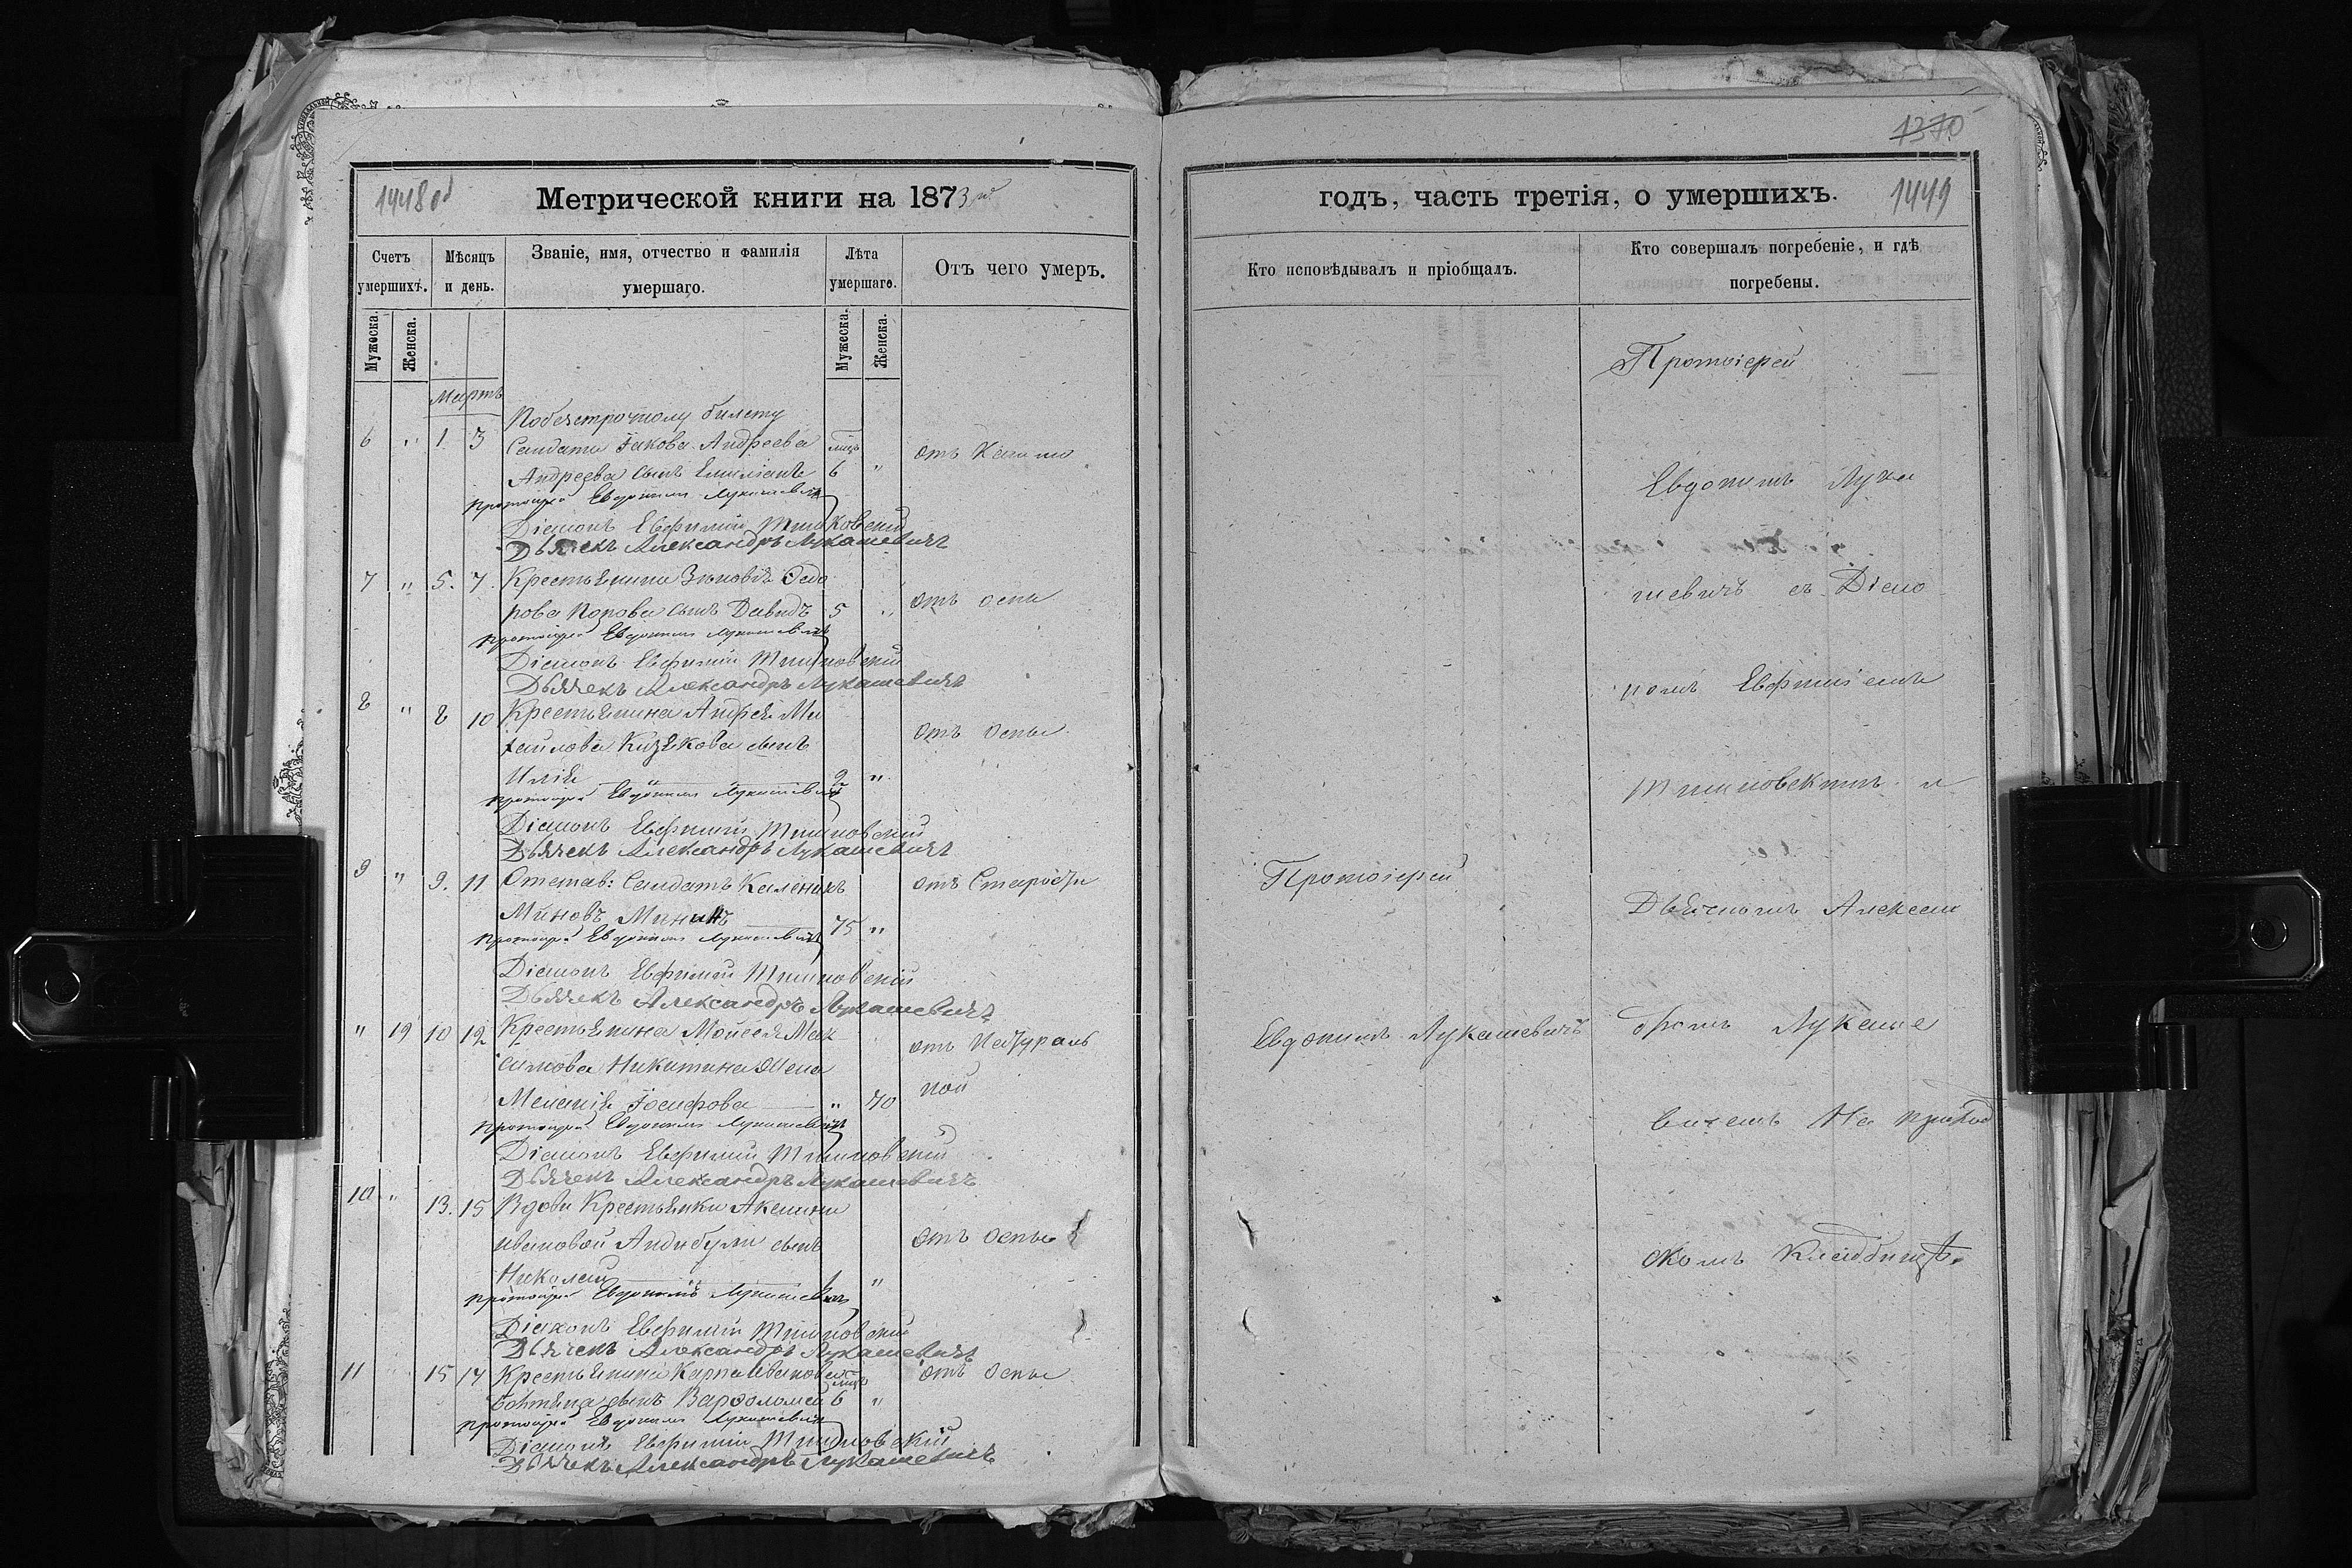 1370
1448 об
Метрической книги на 1873 й
годъ, часть третія, о умершихъ.
1449
Счетъ умершихъ.
Мѣсяцъ и день.
Званіе, имя, отчество и фамилія умершаго.
Лѣта умершаго.
Отъ чего умеръ.
Кто исповѣдывалъ и пріобщалъ.
Кто совершалъ погребеніе, и гдѣ погребены.
Мужеска.
Женска.
Мужеска.
Женска.
Мартъ
По безсрочному билету
6 " 1. 3 Салдата Іакова Андреева мѣц.
Андреева сынъ Емиліанъ 6 "
отъ Кашлю
Протоіерей Евдокимъ Лукашевичъ
Діаконъ Евфимій
Дьячекъ Александръ Лукашевичъ
7 " 5. 7. Крестьянина Зиновія Ѳедо
рова Попова сынъ Давидъ 5 "
отъ оспы
Протоіерей Евдокимъ Лукашевичъ
Діаконъ Евфимій
Дьячекъ Александръ Лукашевичъ
8 " 8 10 Крестьянина Андрея Ми
хаилова Казакова сынъ
отъ оспы
Илія 2 "
Протоіерей Евдокимъ Лукашевичъ
Діаконъ Евфимій
Дьячекъ Александръ Лукашевичъ
9 " 9. 11 Отстав: Салдатъ Каленикъ
Миновъ 75 "
отъ Старости
Протоіерей Евдокимъ Лукашевичъ
Діаконъ Евфимій
Дьячекъ Александръ Лукашевичъ
" 19 10 12 Крестьянина Моисея Мак
симова Никитина Жена
Меланія Іосифова " 70
отъ
ной
Протоіерей Евдокимъ Лукашевичъ
Діаконъ Евфимій
Дьячекъ Александръ Лукашевичъ
10 " 13. 15 Вдовы Крестьянки Аксиніи
Ивановой сынъ
отъ оспы
Николай 1 "
Протоіерей Евдокимъ Лукашевичъ
Діаконъ Евфимій
Дьячекъ Александръ Лукашевичъ
11 15 17 Крестьянина Карпа Иванова мѣц.
сынъ Варфоломей 6 "
отъ оспы
Протоіерей Евдокимъ Лукашевичъ
Діаконъ Евфимій
Дьячекъ Александръ Лукашевичъ
Протоіерей
Евдокимъ Лукашевичъ
Протоіерей
Евдокимъ Лука
шевичъ съ Діако
номъ Евфиміемъ
и
Дьячкомъ Алексан
дромъ Лукаше
вичемъ На приход
скомъ Кладбищѣ.